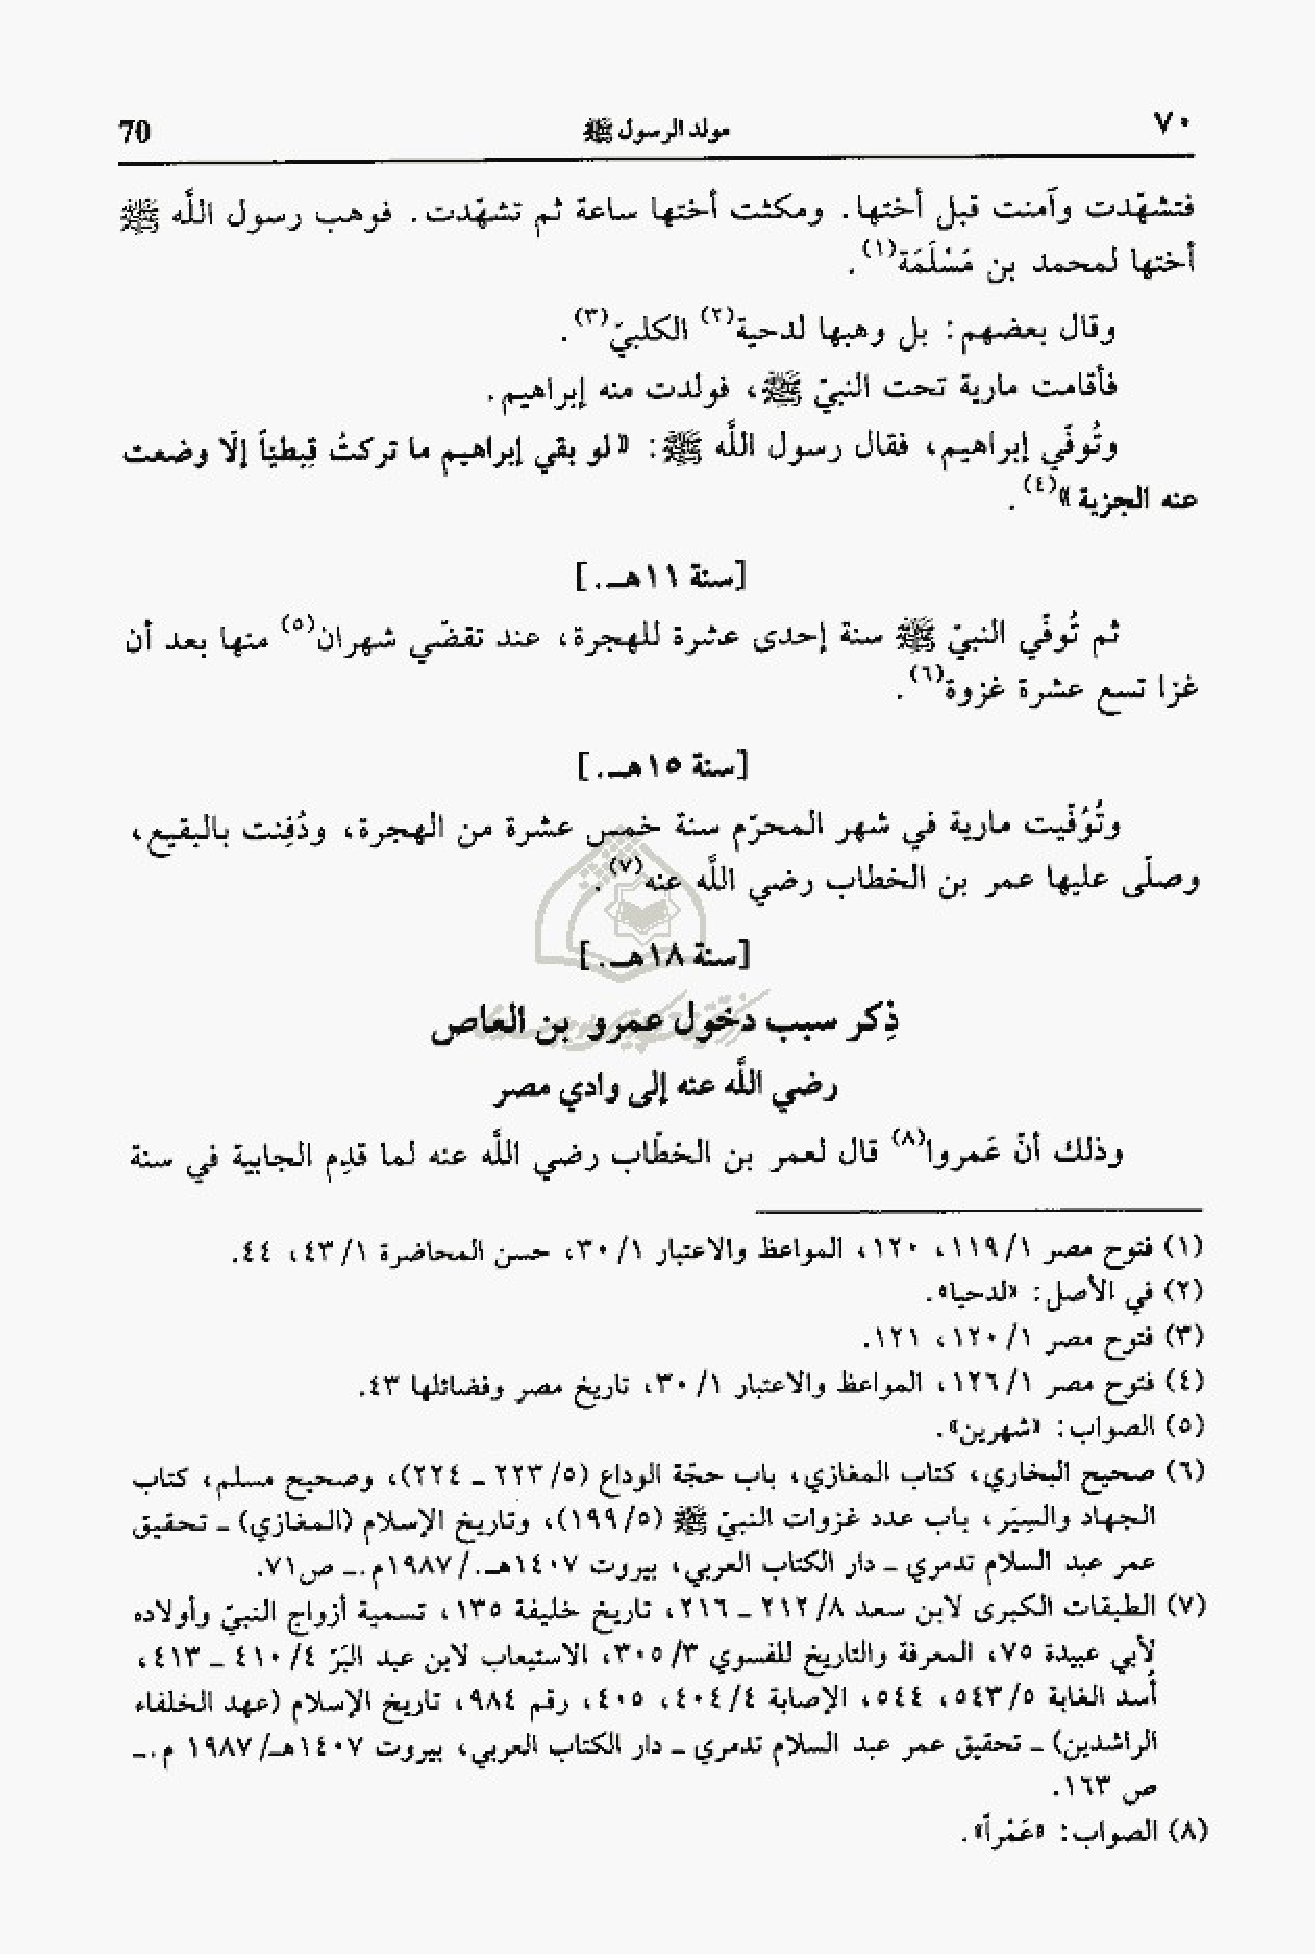 ٧٠ مولد الرسول ﷺ 70
فتشهّدت وآمنت قبل أختها. ومكثت أختها ساعة ثم تشهّدت. فوهب رسول اللَّه ﷺ
أختها لمحمد بن مَسْلَمَة(١).
وقال بعضهم: بل وهبها لدحية(٢) الكلبيّ(٣).
فأقامت مارية تحت النبيّ ﷺ، فولدت منه إبراهيم.
وتُوفّي إبراهيم، فقال رسول اللَّه ﷺ: «لو بقي إبراهيم ما تركتُ قِبطيّاً إلّا وضعت
عنه الجزية»(٤).
[سنة ١١هـ.]
ثم تُوفّي النبيّ ﷺ سنة إحدى عشرة للهجرة، عند تقضّي شهران(٥) منها بعد أن
غزا تسع عشرة غزوة(٦).
[سنة ١٥هـ.]
وتُوُفّيت مارية في شهر المحرّم سنة خمس عشرة من الهجرة، ودُفِنت بالبقيع،
وصلّى عليها عمر بن الخطاب رضي اللَّه عنه(٧).
[سنة ١٨هـ.]
ذِكر سبب دخول عمرو بن العاص
رضي اللَّه عنه إلى وادي مصر
وذلك أنّ عَمروا(٨) قال لعمر بن الخطّاب رضي اللَّه عنه لما قدِم الجابية في سنة
(١) فتوح مصر ١/١١٩، ١٢٠، المواعظ والاعتبار ١/٣٠، حسن المحاضرة ١/٤٣، ٤٤.
(٢) في الأصل: «لدحيا».
(٣) فتوح مصر ١/١٢٠، ١٢١.
(٤) فتوح مصر ١/١٢٦، المواعظ والاعتبار ١/٣٠، تاريخ مصر وفضائلها ٤٣.
(٥) الصواب: «شهرين».
(٦) صحيح البخاري، كتاب المغازي، باب حجّة الوداع (٥/٢٢٣ ـ ٢٢٤)، وصحيح مسلم، كتاب
الجهاد والسِيَر، باب عدد غزوات النبيّ ﷺ (٥/١٩٩)، وتاريخ الإسلام (المغازي) ـ تحقيق
عمر عبد السلام تدمري ـ دار الكتاب العربي، بيروت ١٤٠٧هـ./١٩٨٧م.ـ ص٧١.
(٧) الطبقات الكبرى لابن سعد ٨/٢١٢ ـ ٢١٦، تاريخ خليفة ١٣٥، تسمية أزواج النبيّ وأولاده
لأبي عبيدة ٧٥، المعرفة والتاريخ للفسوي ٣/٣٠٥، الاستيعاب لابن عبد البَرّ ٤/٤١٠ ـ ٤١٣،
أُسد الغابة ٥/٥٤٣، ٥٤٤، الإصابة ٤/٤٠٤، ٤٠٥، رقم ٩٨٤، تاريخ الإسلام (عهد الخلفاء
الراشدين) ـ تحقيق عمر عبد السلام تدمري ـ دار الكتاب العربي، بيروت ١٤٠٧هـ/١٩٨٧ م.ـ
ص ١٦٣.
(٨) الصواب: «عَمْراً».